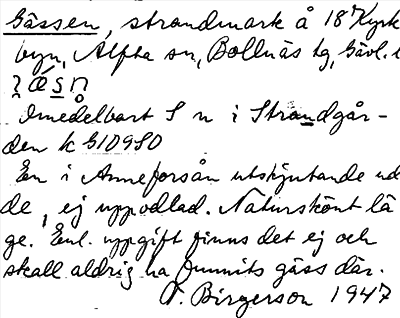 Gässen, strandmark å 18 Kyrk
byn, Alfta sn, Bollnäs tg, Gävl.
Omedelbart S n i Strandgår-
den k G1090
En i Anneforsån utskjutande ud
de, ej uppodlad. Naturskönt lä
ge. Enl. uppgift finns det ej och
skall aldrig ha funnits gäss där.
T. Birgerson 1947